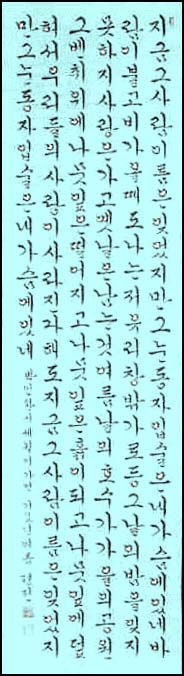 지금그사람이름은잊었지만그눈동자입술은내가슴에있네바
람이불고비가올때도나는저유리창밖가로등그날의밤을잊지
못하지사랑은가고옛날은남는것여름날의호수가가을의공원
그벤취위에나뭇잎은떨어지고나뭇잎은흙이되고나뭇잎에덮
혀서우리들의사랑이사라진다해도지금그사람이름은잊었지
만그눈동자입술은내가슴에있네
박인환시세월이가면